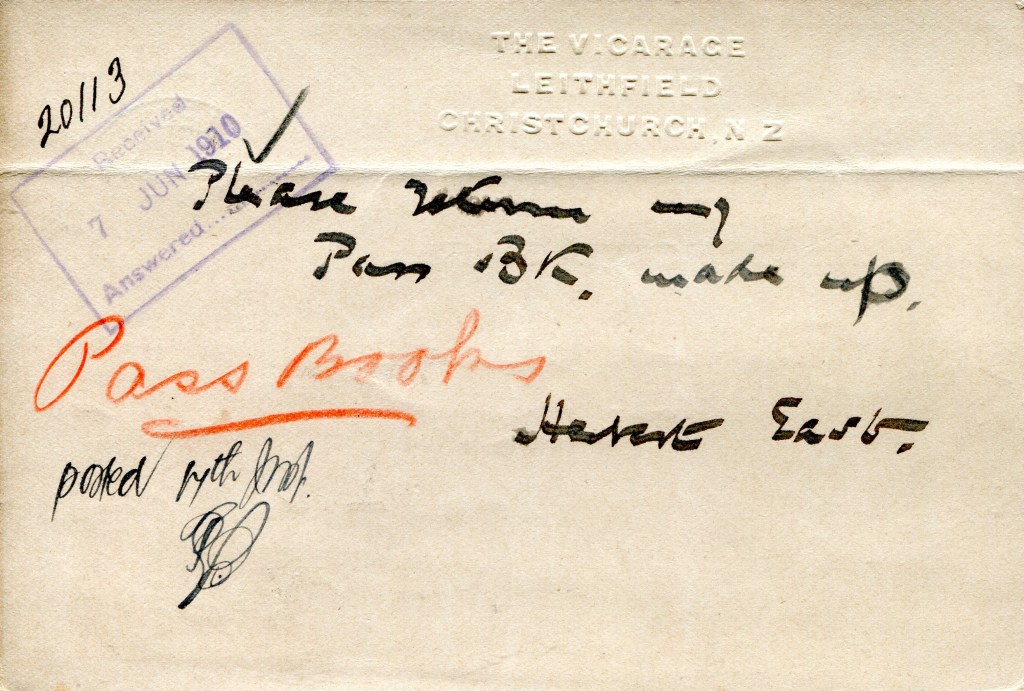 THE VICARAGE
LEITHFIELD
CHRISTCHURCH, N Z
20113
Received
7 JUN 1910
Answered
Please return my
Pass Bk. made up.
Pass Books
Herbert East.
posted 14th Inst.